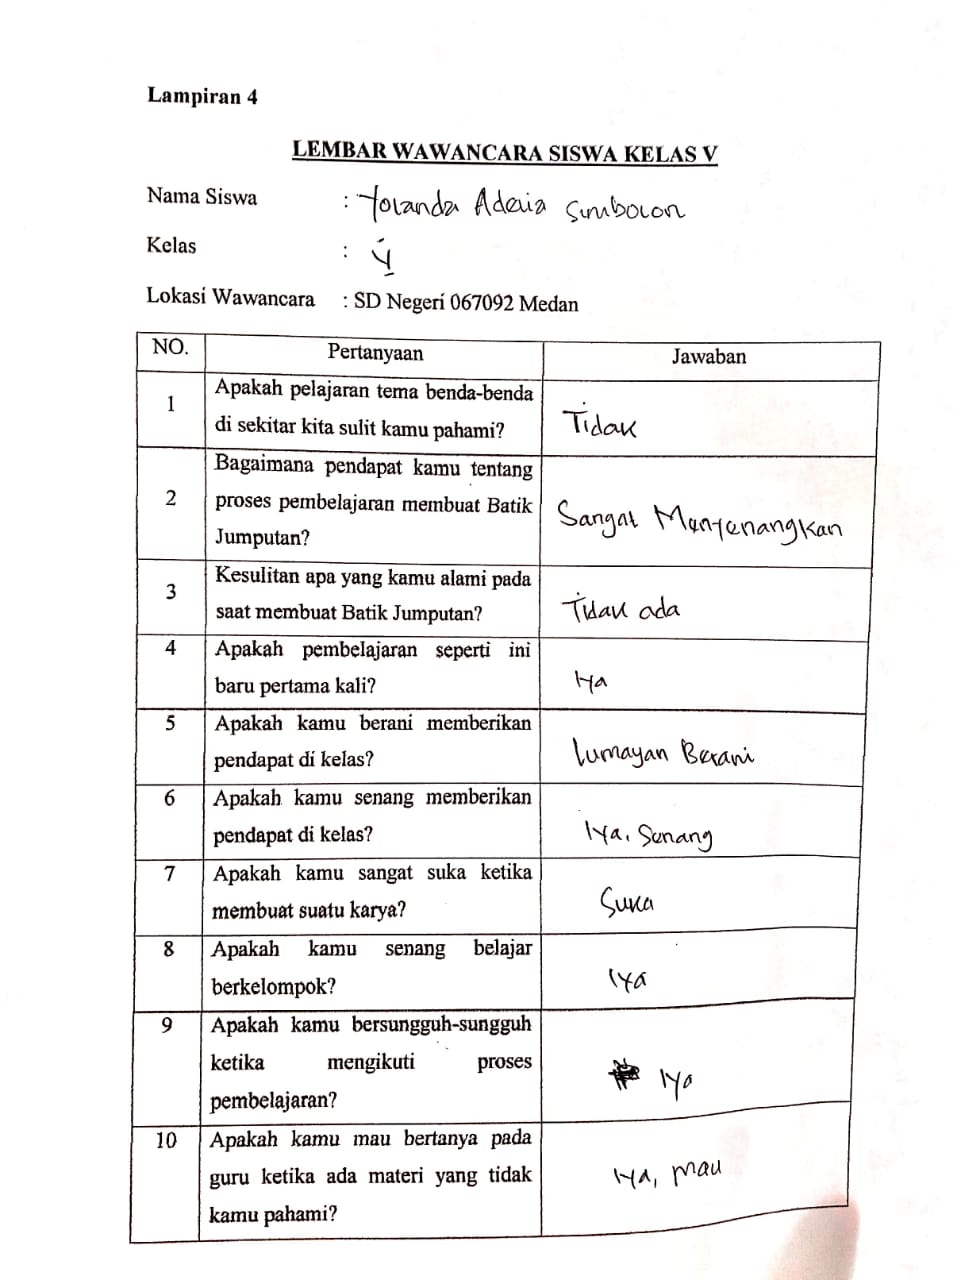 Lampiran 4
LEMBAR WAWANCARA SISWA KELAS V
Nama Siswa : Yolanda Simbolon
Kelas : V
Lokasi Wawancara : SD Negeri 067092 Medan
NO. Pertanyaan Jawaban
1 Apakah pelajaran tema benda-benda
di sekitar kita sulit kamu pahami?
Tidak
2 Bagaimana pendapat kamu tentang
proses pembelajaran membuat Batik
Jumputan?
Sangat Menyenangkan
3 Kesulitan apa yang kamu alami pada
saat membuat Batik Jumputan?
Tidak ada
4 Apakah pembelajaran seperti ini
baru pertama kali?
Iya
5 Apakah kamu berani memberikan
pendapat di kelas?
Lumayan Berani
6 Apakah kamu senang memberikan
pendapat di kelas?
Iya, Senang
7 Apakah kamu sangat suka ketika
membuat suatu karya?
Suka
8 Apakah kamu senang belajar
berkelompok?
Iya
9 Apakah kamu bersungguh-sungguh
ketika mengikuti proses
pembelajaran?
Iya
10 Apakah kamu mau bertanya pada
guru ketika ada materi yang tidak
kamu pahami?
Iya, mau